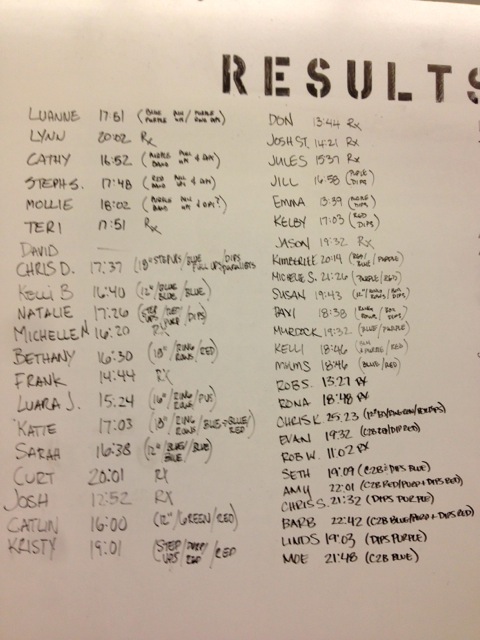 RESULTS
LUANNE 17:51 (BLUE PURPLE / PURPLE
LYNN 20:02 Rx
CATHY 16:52 (PURPLE BAND PULL UPS & DIPS)
STEPH S. 17:48 (RED BAND PULL UPS & DIPS)
MOLLIE 18:02 (PURPLE BAND PULL UPS & DIPS?)
TERI 17:51 Rx
DAVID —
CHRIS D. 17:37 (18" STEPUPS/BLUE PULL UPS/DIPS PARALLETS
KELLI B 16:40 (12"/BLUE BLUE/BLUE)
NATALIE 17:26 (STEP UPS/RED/DIPS)
MICHELLE N 16:20 RX
BETHANY 16:30 (18"/RING ROWS/RED)
FRANK 14:44 RX
LUARA J. 15:24 (16"/RING ROWS/
KATIE 17:03 (18"/RING ROWS/BLUE+BLUE/RED)
SARAH 16:38 (12"/BLUE/BLUE BLUE)
CURT 20:01 RX
JOSH 12:52 RX
CATLIN 16:00 (12"/GREEN/RED)
KRISTY 19:01 (STEP UPS/PURP RED/RED
DON 13:44 Rx
JOSH ST. 14:21 Rx
JULES 15:37 Rx
JILL 16:58 (PURPLE DIPS)
EMMA 13:39 (DIPS)
KELBY 17:03 (RED DIPS)
JASON 19:32 Rx
KIMBERLEE 20:14 (RED/BLUE/PURPLE)
MICHELLE S. 21:26 (PURPLE/RED)
SUSAN 19:43 (12"/RING ROWS/BOX DIPS)
18:38 (RING ROWS/BOX DIPS)
MURDOCK 19:32 (BLUE/PURPLE)
KELLI 18:46 (PURPLE/RED)
18:46 (BLUE/RED)
ROB S. 13:21 RX
RONA 18:48 RX
CHRIS K. 25:23 (12"
EVAN 19:32 (C2B RED/DIP RED)
ROB W. 11:02 RX
SETH 19:09 (C2B + DIPS BLUE)
AMY 22:01 (C2B RED/PURP + DIPS RED)
CHRIS S. 21:32 (DIPS PURPLE)
BARB 22:42 (C2B BLUE/PURP + DIPS RED)
LINDS 19:03 (DIPS PURPLE)
MOE 21:48 (C2B BLUE)